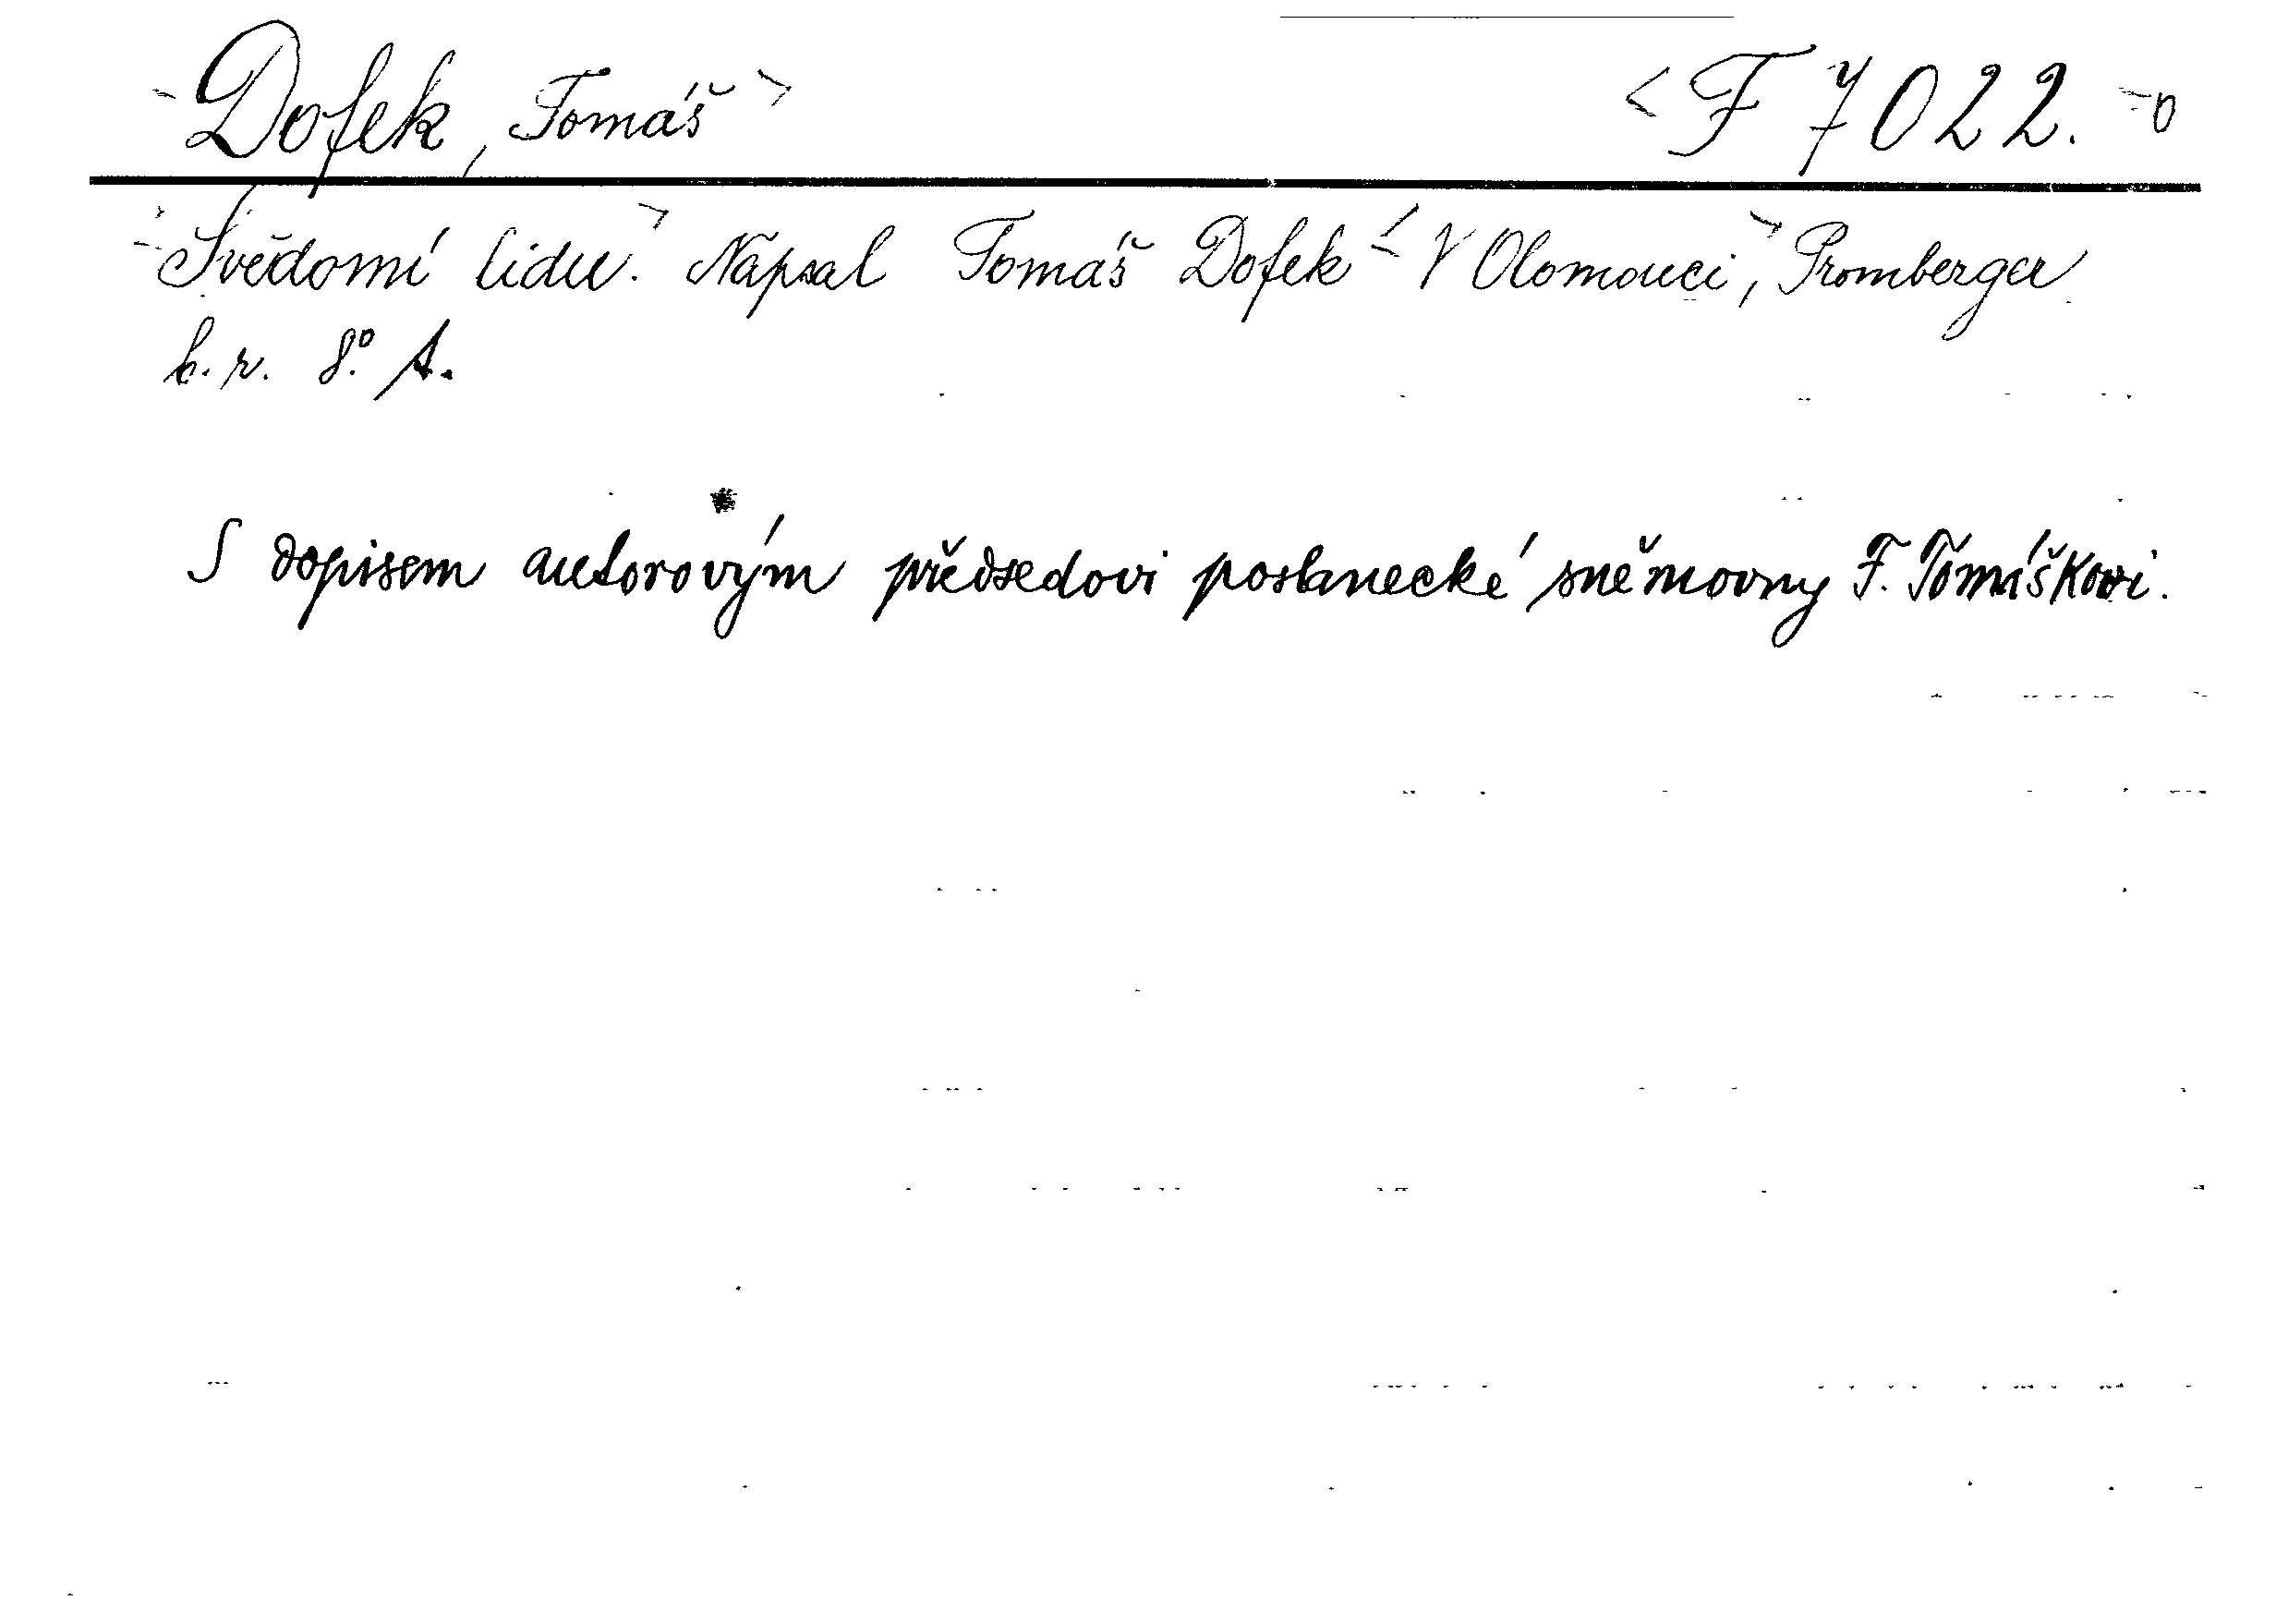 Dofek, Tomáš F 7022.
Svědomí lidu. Napsal Tomáš Dofek V Olomouci, Promberger
b. r. 8.° A.
S dopisem autorovým předsedovi poslanecké sněmovny F. Tomáškovi.